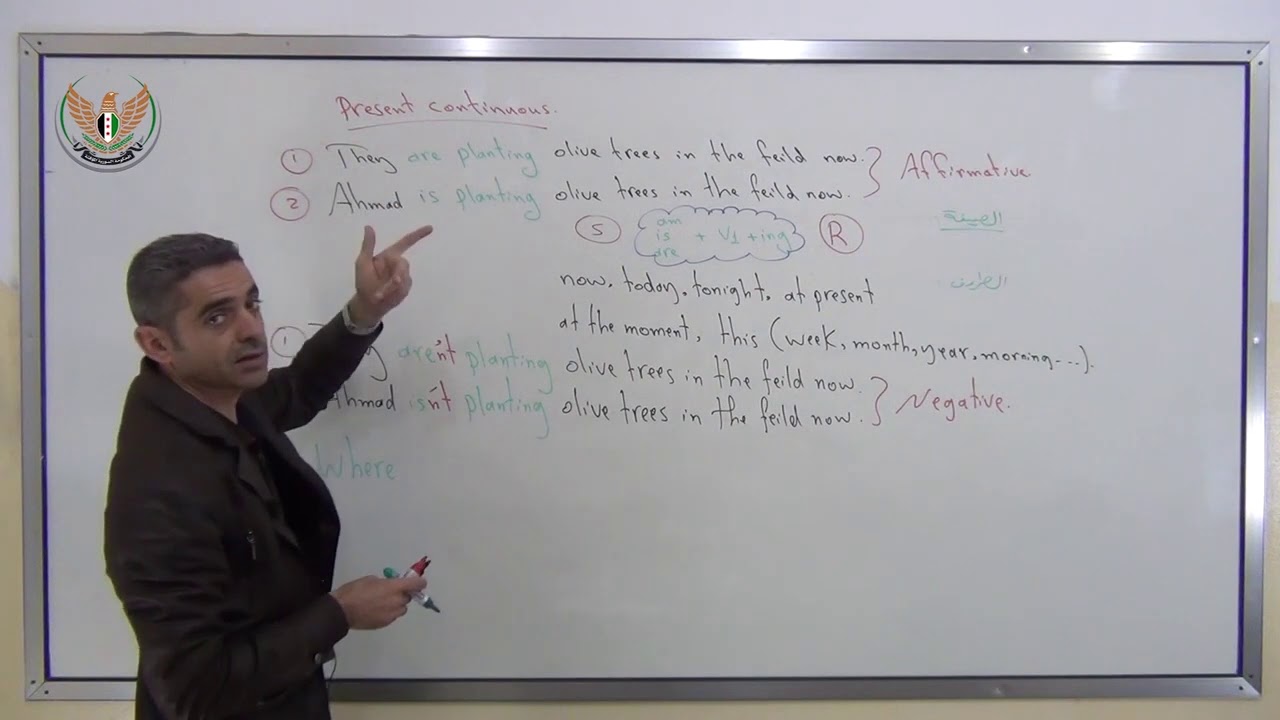 Present continuous.
1 They are planting olive trees in the feild now. } Affirmative
2 Ahmad is planting olive trees in the feild now.
الصيغة:
S am is are + V1 + ing R
الظروف:
now, today, tonight, at present
at the moment, this (week, month, year, morning ...).
1 are'nt planting olive trees in the feild now. } Negative.
Ahmad is'nt planting olive trees in the feild now.
Where